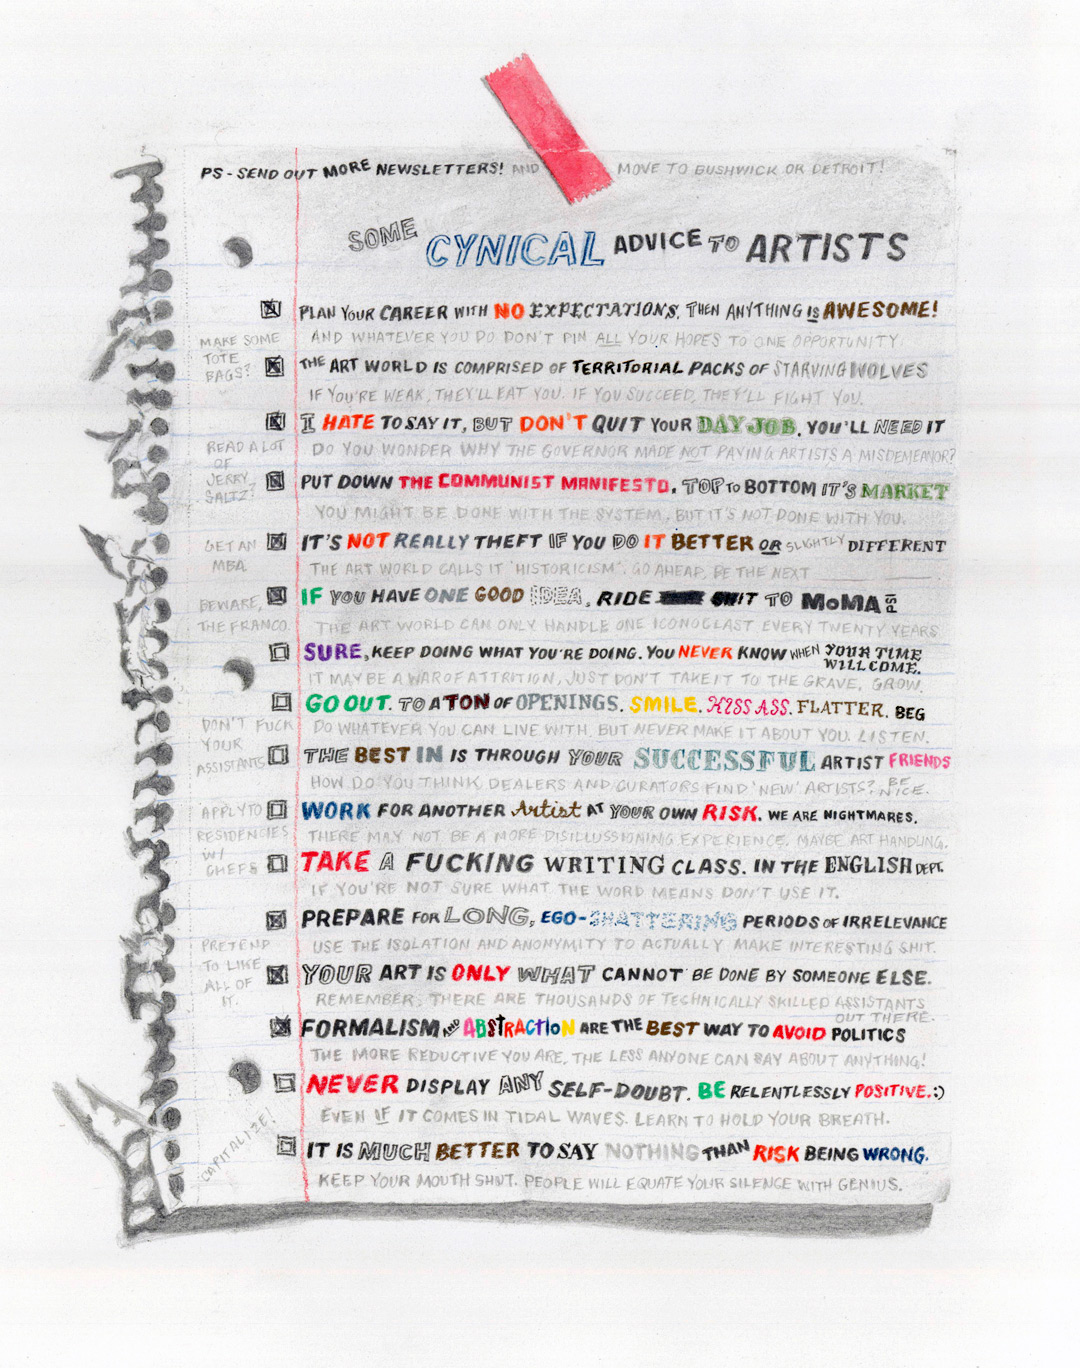 PS - SEND OUT MORE NEWSLETTERS! AND MOVE TO BUSHWICK OR DETROIT!
SOME CYNICAL ADVICE TO ARTISTS
PLAN YOUR CAREER WITH NO EXPECTATIONS. THEN ANYTHING IS AWESOME!
AND WHATEVER YOU DO DON'T PIN ALL YOUR HOPES TO ONE OPPORTUNITY
MAKE SOME
TOTE
BAGS?
THE ART WORLD IS COMPRISED OF TERRITORIAL PACKS OF STARVING WOLVES
IF YOU'RE WEAK, THEY'LL EAT YOU. IF YOU SUCCEED, THEY'LL FIGHT YOU.
I HATE TO SAY IT, BUT DON'T QUIT YOUR DAY JOB. YOU'LL NEED IT
DO YOU WONDER WHY THE GOVERNOR MADE NOT PAYING ARTISTS A MISDEMEANOR?
READ A LOT
OF
JERRY
SALTZ?
PUT DOWN THE COMMUNIST MANIFESTO. TOP TO BOTTOM IT'S MARKET
YOU MIGHT BE DONE WITH THE SYSTEM, BUT IT'S NOT DONE WITH YOU.
IT'S NOT REALLY THEFT IF YOU DO IT BETTER OR SLIGHTLY DIFFERENT
THE ART WORLD CALLS IT 'HISTORICISM'. GO AHEAD, BE THE NEXT
GET AN
MBA
IF YOU HAVE ONE GOOD IDEA, RIDE IT TO MoMA PS1
THE ART WORLD CAN ONLY HANDLE ONE ICONOCLAST EVERY TWENTY YEARS
BEWARE,
THE FRANCO.
SURE, KEEP DOING WHAT YOU'RE DOING. YOU NEVER KNOW WHEN YOUR TIME
WILL COME.
IT MAY BE A WAR OF ATTRITION, JUST DON'T TAKE IT TO THE GRAVE, GROW.
GO OUT. TO A TON OF OPENINGS. SMILE. KISS ASS. FLATTER. BEG
DO WHATEVER YOU CAN LIVE WITH, BUT NEVER MAKE IT ABOUT YOU. LISTEN.
DON'T FUCK
YOUR
ASSISTANTS
THE BEST IN IS THROUGH YOUR SUCCESSFUL ARTIST FRIENDS
HOW DO YOU THINK DEALERS AND CURATORS FIND 'NEW' ARTISTS? BE
NICE.
WORK FOR ANOTHER Artist AT YOUR OWN RISK. WE ARE NIGHTMARES.
THERE MAY NOT BE A MORE DISILLUSSIONING EXPERIENCE. MAYBE ART HANDLING.
APPLY TO
RESIDENCIES
W/
CHEFS
TAKE A FUCKING WRITING CLASS. IN THE ENGLISH DEPT.
IF YOU'RE NOT SURE WHAT THE WORD MEANS DON'T USE IT.
PREPARE FOR LONG, EGO-SHATTERING PERIODS OF IRRELEVANCE
USE THE ISOLATION AND ANONYMITY TO ACTUALLY MAKE INTERESTING SHIT.
PRETEND
TO LIKE
ALL OF
IT.
YOUR ART IS ONLY WHAT CANNOT BE DONE BY SOMEONE ELSE.
REMEMBER, THERE ARE THOUSANDS OF TECHNICALLY SKILLED ASSISTANTS
OUT THERE.
FORMALISM AND ABSTRACTION ARE THE BEST WAY TO AVOID POLITICS
THE MORE REDUCTIVE YOU ARE, THE LESS ANYONE CAN SAY ABOUT ANYTHING!
NEVER DISPLAY ANY SELF-DOUBT. BE RELENTLESSLY POSITIVE. :)
EVEN IF IT COMES IN TIDAL WAVES. LEARN TO HOLD YOUR BREATH.
CAPITALIZE!
IT IS MUCH BETTER TO SAY NOTHING THAN RISK BEING WRONG.
KEEP YOUR MOUTH SHUT. PEOPLE WILL EQUATE YOUR SILENCE WITH GENIUS.